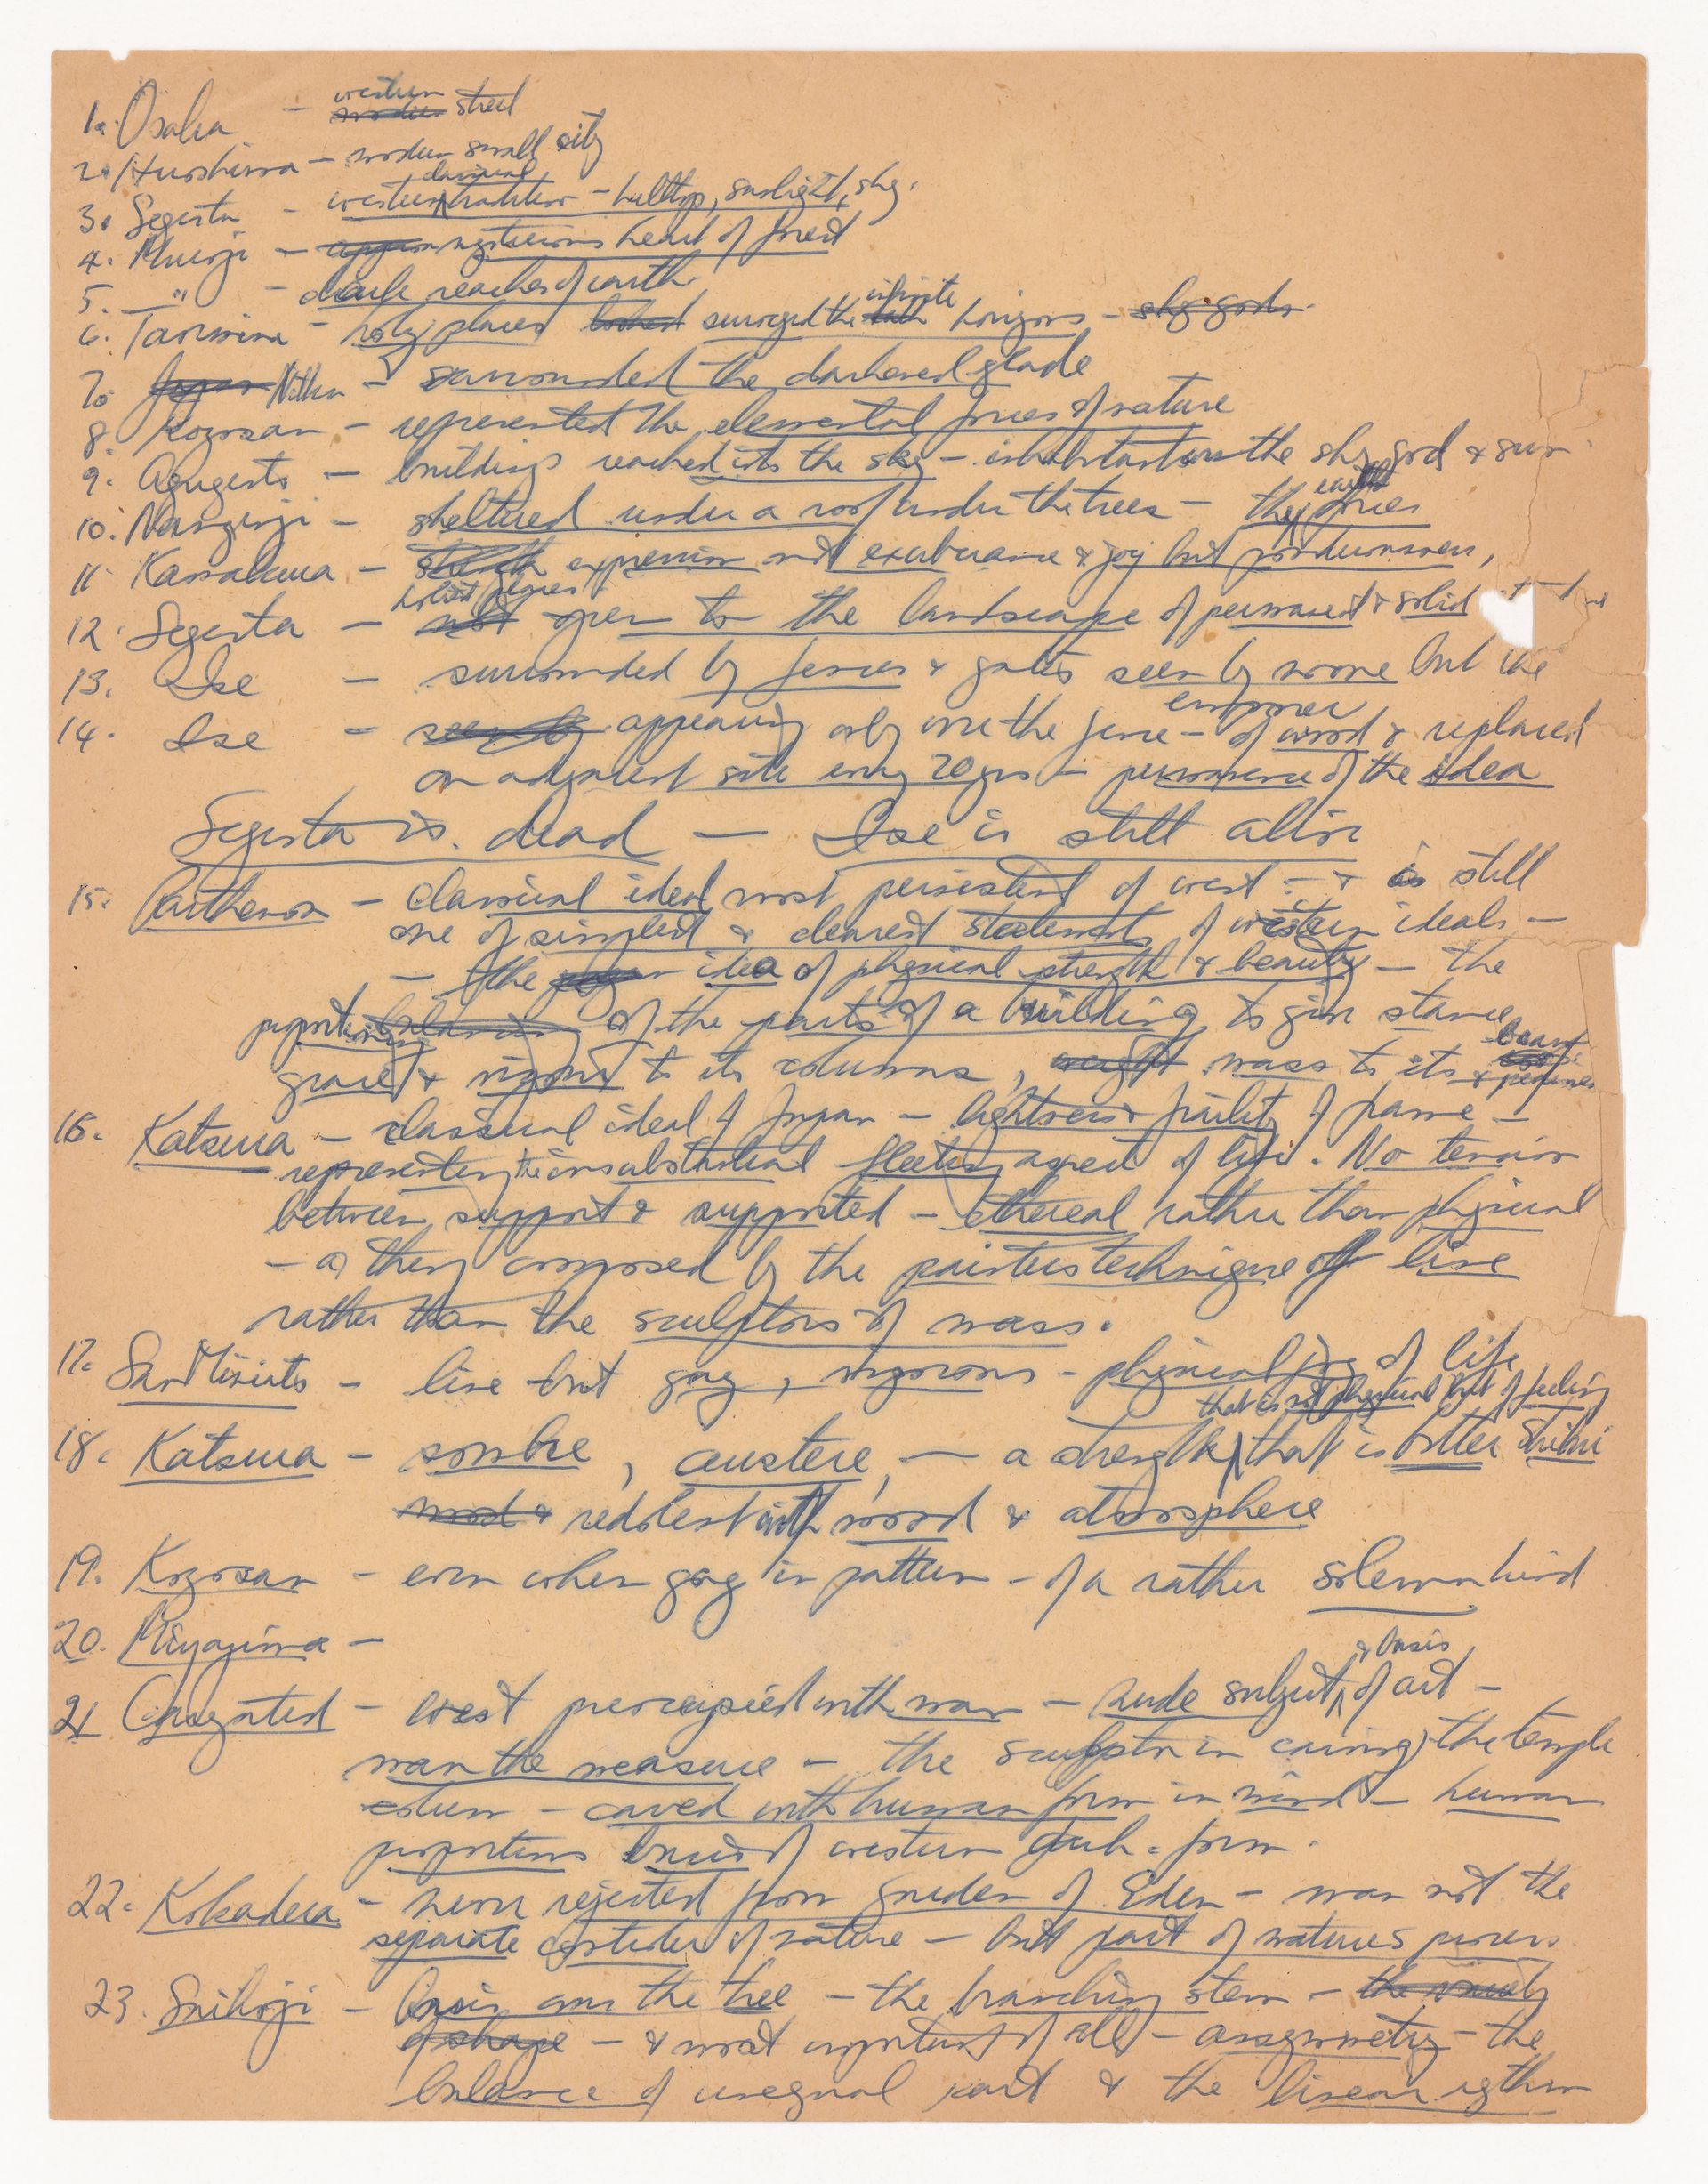 1. Osaka - western street
2. Hiroshima - modern small city
3. Segesta - western classical tradition - hilltop, sunlight, sky.
4. Muroji - mysterious heart of forest
5. " - dark reaches of earth
6. Taormina - holy places surveyed the infinite horizons - sky gods.
7. Nikko - surrounded the darkened glade
8. Koyosan - represented the elemental forces of nature
9. Agrigento - buildings reached into the sky - the sky god & sun
10. Nanzenji - sheltered under a roof under the trees - the earth forces
11. Kamakura - expression not exuberance & joy but ponderousness,
12. Segesta - open to the landscape of permanent & solid
13. Ise - surrounded by fences & gates seen by none but the
emperor
14. Ise - seen by appearing only over the fence - of wood & replaced
on adjacent site every 20 yrs - permanence of the idea
Segesta is dead - Ise is still alive
15. Parthenon - classical ideal most persistent of west - & is still
one of simplest & clearest statements of western ideals -
- the idea of physical strength & beauty - the
proportioning of the parts of a building to give stance
grace & vigour to its columns, weight mass to its beams
16. Katsura - classical ideal of Japan - lightness & frailty of frame -
representing the insubstantial fleeting aspect of life. No tension
between support & supported - ethereal rather than physical
- as they composed by the painters technique of line
rather than the sculptors of mass.
17. San Miniato - line but gay, vigorous - physical joy of life
that is not physical but of feeling
18. Katsura - sombre, austere, - a strength that is bitter Shibui
mood & redolent with mood & atmosphere
19. Koyosan - even when gay in pattern - of a rather solemn kind
20. Miyajima -
& basis
21 - west preoccupied with man - nude subject of art -
man the measure - the sculptor in carving the temple
column - carved with human form in mind - human
proportions basis of western arch. form.
22. Kokadera - never rejected from garden of Eden - man not the
separate of nature - but part of natures powers
23. Saihoji - basis was the tree - the branching stem - the variety
of shape - & most important of all - assymmetry - the
balance of unequal part & the linear rythm